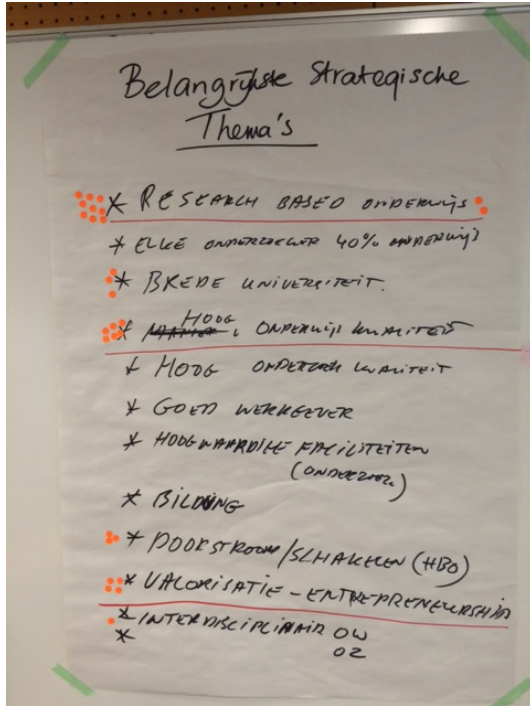 Belangrijkste Strategische
Thema's
* RESEARCH BASED ONDERWIJS
* ELKE ONDERZOEKER 40% ONDERWIJS
* BREDE UNIVERSITEIT.
* HOOG ONDERWIJS KWALITEIT
* HOOG ONDERZOEK KWALITEIT
* GOED WERKGEVER
* HOOGWAARDIGE FACILITEITEN
(ONDERZOEK)
* BILDUNG
* DOORSTROOM/SCHAKELEN (HBO)
* VALORISATIE - ENTREPRENEURSHIP
* INTERDISCIPLINAIR OW
* OZ